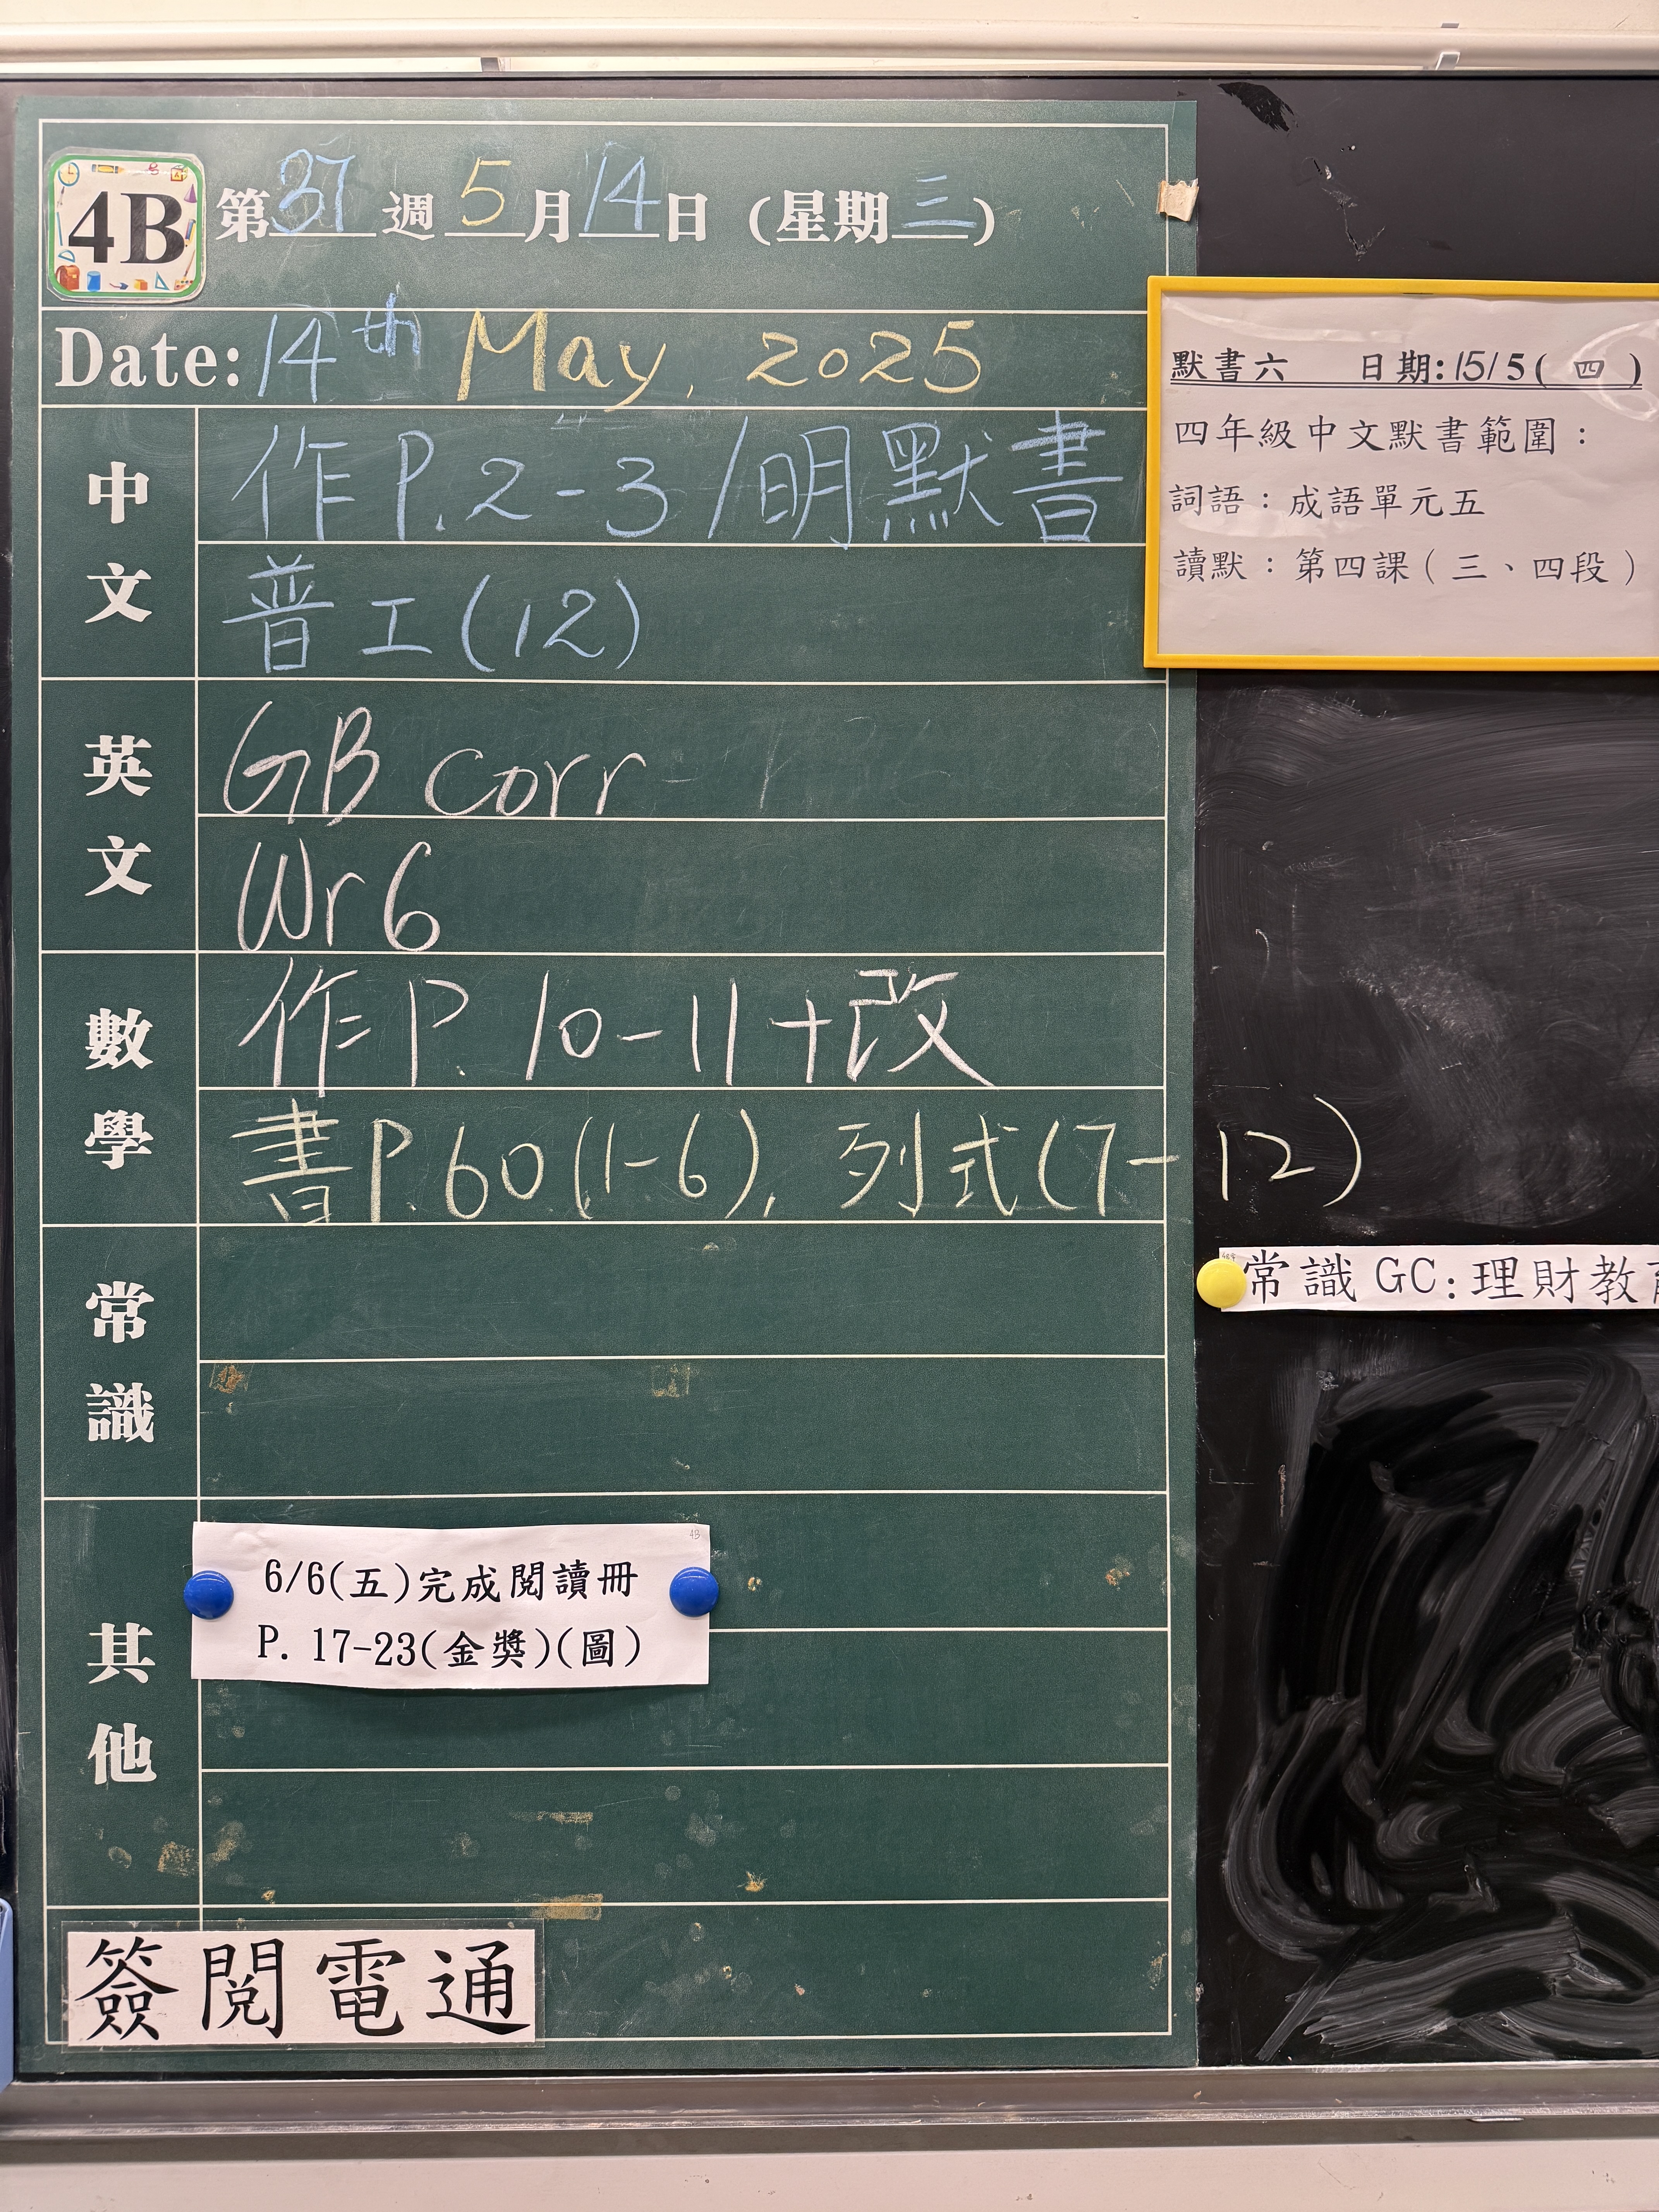 4B 第37週5月14日(星期三)
Date: 14th May, 2025
中文
作P.2-3/明默書
普工(12)
英文
GB corr
Wr 6
數學
作P. 10-11+改
書P.60(1-6), 列式(7-12)
常識
其他
4B
6/6(五)完成閱讀冊
P. 17-23(金獎)(圖)
簽閱電通
默書六 日期:15/5(四)
四年級中文默書範圍：
詞語：成語單元五
讀默：第四課（三、四段）
常識 GC:理財教